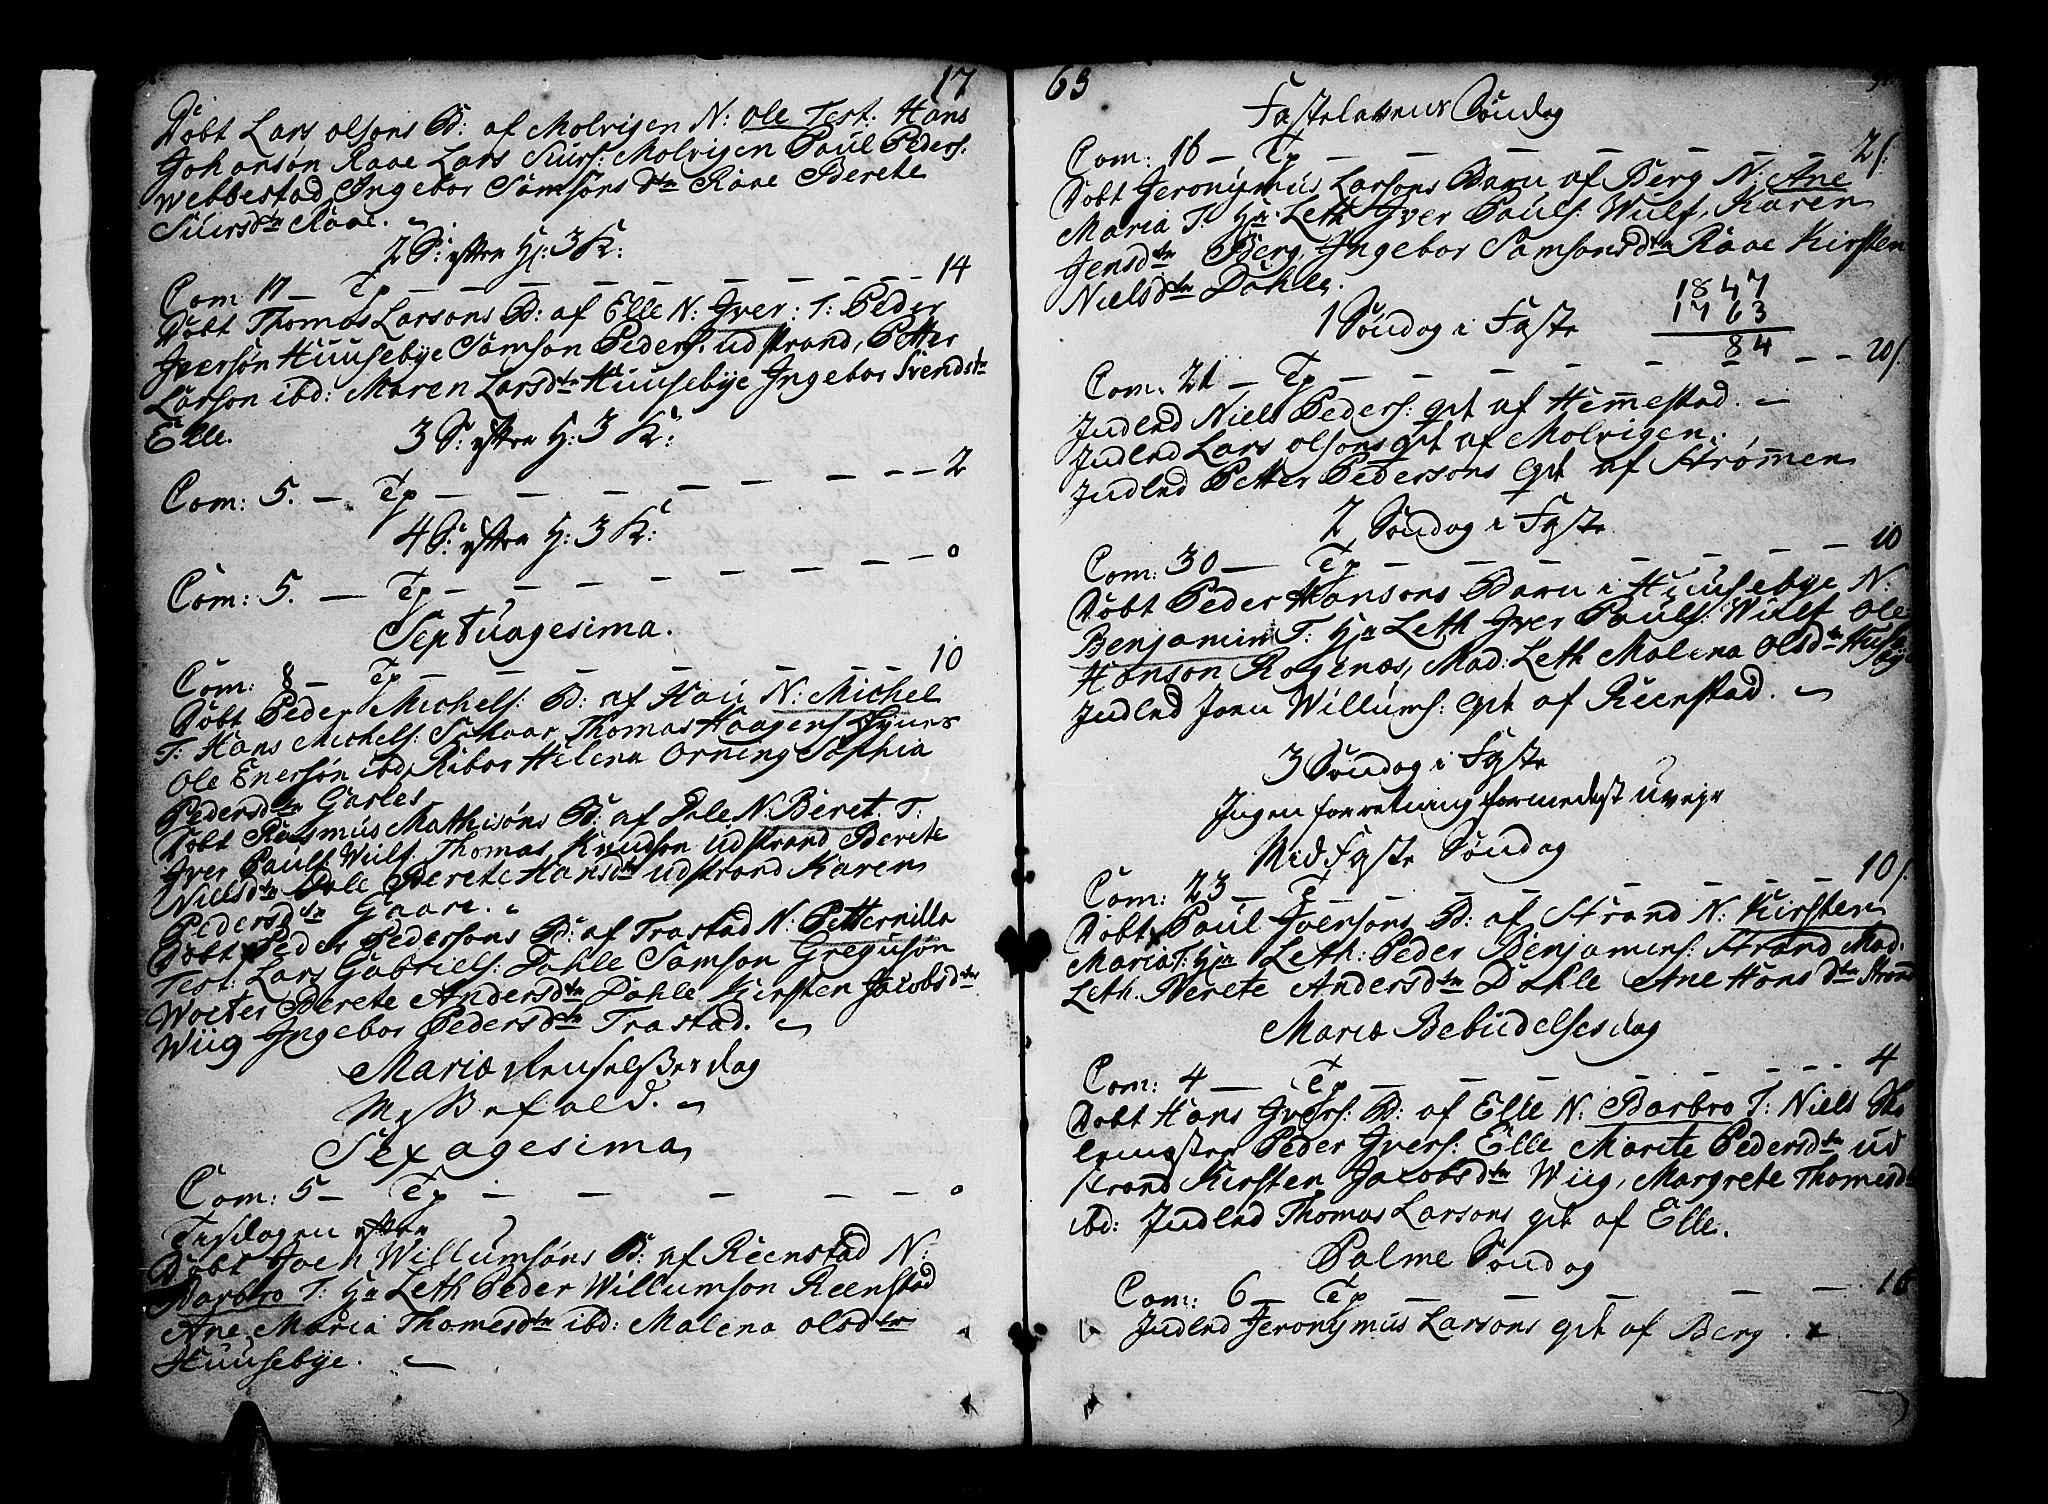 17
Døbt Lars olsons B: af Molvigen N: Ole Test. Hans
Johansøn Raae Lars Siurs: Molvigen Paul Peders:
Webbestad Ingebor Samsons dtr Raae Berete
Siursdtr Raae.
2 S: efter H: 3 K:
Com 17 — Tp — — — — — — — 14
Døbt Thomas Larsons B: af Elle N: Jver: T: Peder
Jversøn Huusebye Samson Peders: udstrand, Petter
Larson ibd: Maren Larsdtr Huusebye Ingebor Svendsdtr
Elle.
3 S: efter H: 3 K:
Com: 5. — Tp — — — — — — — 2
4 S: efter H: 3 K:
Com: 5. — Tp — — — — — — — 0
Septuagesima.
Com: 8 — Tp — — — — — — 10
Døbt Peder Michels: B: af Hau N: Michel
T: Hans Michels: Thomas Haagens
Ole Enersøn ibd Helena Orning Sophia
Pedersdtr
Døbt Rasmus Mathisøns B: af Dale N: Beret T:
Jver Pauls: Wulf Thomas Knudson udstrand Berete
Nielsdtr Dale Berete Hansdtr udstrand Karen
Pedersdtr Gaare.
Døbt Peder Pedersons B: af Trastad N: Petternilla
Test: Lars Gabriels: Dahle Samson Gregusøn
Woeter Berete Andersdtr Dahle Kirsten Jacobsdtr
Wiig Ingebor Pedersdtr Trastad.
Mariæ Renselses dag
Messefald.
Sexagesima
Com: 5 — Tp — — — — — 0
Tysdagen efter
Døbt Joen Willumsøns B: af Reenstad N:
Barbro T: Hr Leth Peder Willumson Reenstad
Ane Maria Thomesdtr ibd: Malena olsdtr
Huusebye.
63
Fastelavens Søndag
Com: 16 — Tp — — — — — — — 2 s:
Døbt Jeronymus Larsons Barn af Berg N: Ane
Maria T: Hr Leth Jver Pauls: Wulf, Karen
Jensdtr Berg, Ingebor Samsonsdtr Raae Kirsten
Nielsdtr Dahle.
1847
1763
84
1 Søndag i Faste
Com: 21 — Tp — — — — — — — 20 s:
Indled Niels Peders: qvt af Hemmestad.
Indled Lars olsons qvt af Molvigen.
Indled Petter Pedersons qvt af Strømmen
2 Søndag i Faste
Com: 30 — Tp — — — — — — — 10
Døbt Peder Hansons Barn i Huusebye N:
Benjamin T: Hr Leth Jver Pauls: Wulf Ole
Hanson Rogenæs, Mad: Leth Malena Olsdtr Huse
bye
Indled Joen Willums: qvt af Reenstad.
3 Søndag i Faste
Ingen forretning formedelst uvejr
Mid Faste Søndag
Com: 23 — T — 10 s:
Døbt Paul Jversons B: af Strand N: Kirsten
Maria T: Hr Leth: Peder Benjamins: Strand Mad:
Leth. Berete Andersdtr Dahle Ane Hansdtr Strand
Mariæ Bebudelses dag
Com: 4 — Tp — — — — — — — 4
Døbt Hans Jvers: B: af Elle N: Barbro T: Niels
Peder Jvers: Elle Marite Pedersdtr ud
strand Kirsten Jacobsdtr Wiig, Margrete Thomesdtr
ibd: Indled Thomas Larsons qvt af Elle.
Palme Søndag
Com: 6 — Tp — — — — — — 16
Indled Jeronymus Larsons qvt af Berg.